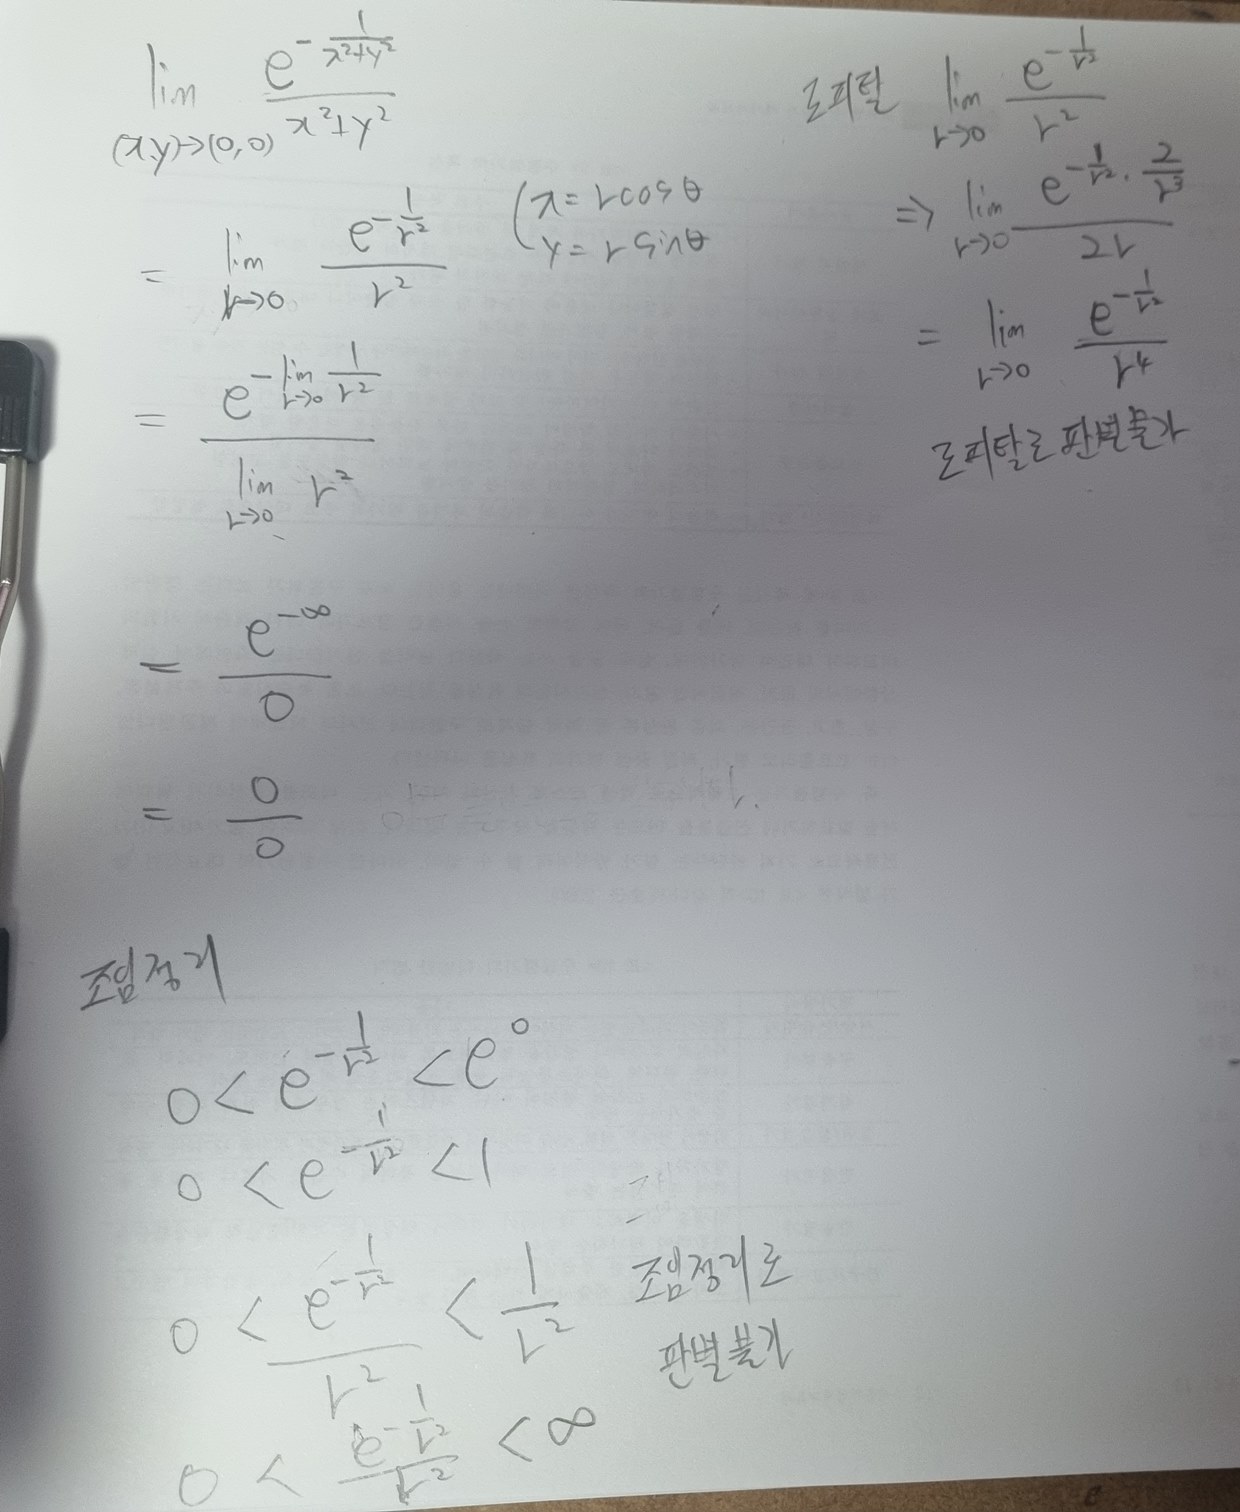 lim e^{-1/(x²+y²)} / (x²+y²)
(x,y)→(0,0)
= lim e^{-1/r²} / r² ( x = rcosθ
r→0 y = rsinθ
= e^{-lim_{r→0} 1/r²} / lim_{r→0} r²
= e^{-∞} / 0
= 0/0
로피탈 lim_{r→0} e^{-1/r²} / r²
⇒ lim_{r→0} e^{-1/r²} · 2/r³ / 2r
= lim_{r→0} e^{-1/r²} / r⁴
로피탈로 판별불가
조임정리
0 < e^{-1/r²} < e⁰
0 < e^{-1/r²} < 1
0 < e^{-1/r²} / r² < 1/r²
조임정리로
판별불가
0 < e^{-1/r²} / r² < ∞